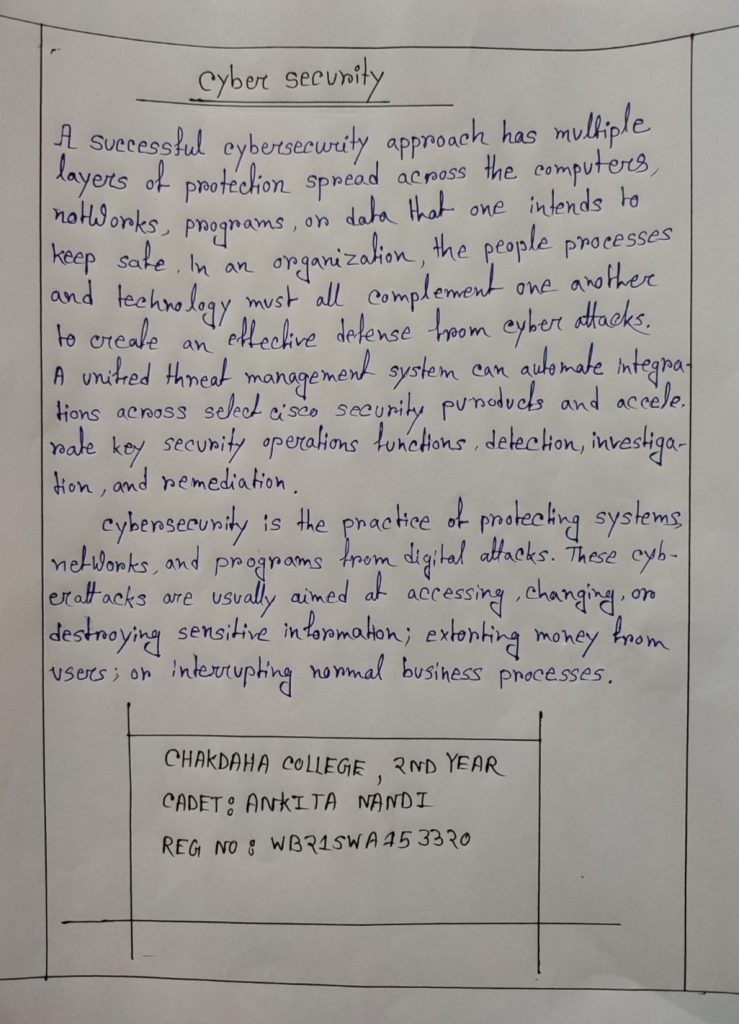 cyber security
A successful cybersecurity approach has multiple
layers of protection spread across the computers,
notworks, programs, or data that one intends to
keep safe. In an organization, the people processes
and technology must all complement one another
to create an effective defense from cyber attacks.
A unified threat management system can automate integra-
tions across select cisco security puroducts and accele.
rate key security operations functions, detection, investiga-
tion, and remediation.
cybersecurity is the practice of protecting systems,
networks, and programs from digital attacks. These cyb-
erattacks are usually aimed at accessing, changing, or
destroying sensitive information; extorting money from
users; or interrupting normal business processes.
CHAKDAHA COLLEGE, 2ND YEAR
CADET: ANKITA NANDI
REG NO: WB21SWA153320